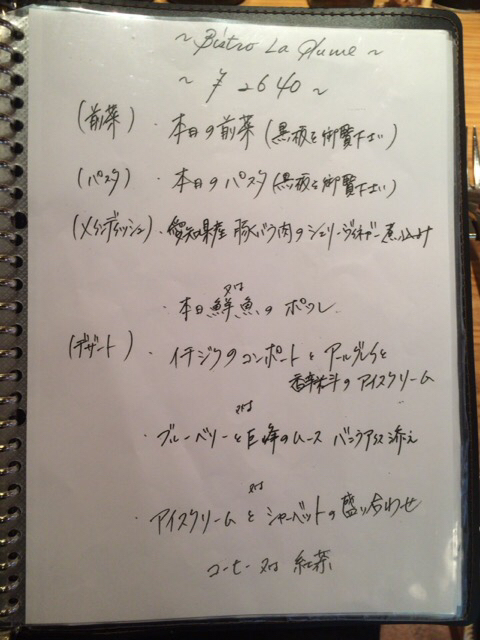 ~ Bistro La Plume ~
~ ¥2640 ~
(前菜) ・本日の前菜 (黒板を御覧下さい)
(パスタ) ・本日のパスタ (黒板を御覧下さい)
(メインディッシュ) ・愛知県産 豚バラ肉のシェリーヴィネガー煮込み
又は
・本日鮮魚のポワレ
(デザート) ・イチジクのコンポートとアールグレイと
香辛料のアイスクリーム
又は
・ブルーベリーと巨峰のムース バニラアイス添え
又は
・アイスクリームとシャーベットの盛り合わせ
コーヒー 又は 紅茶